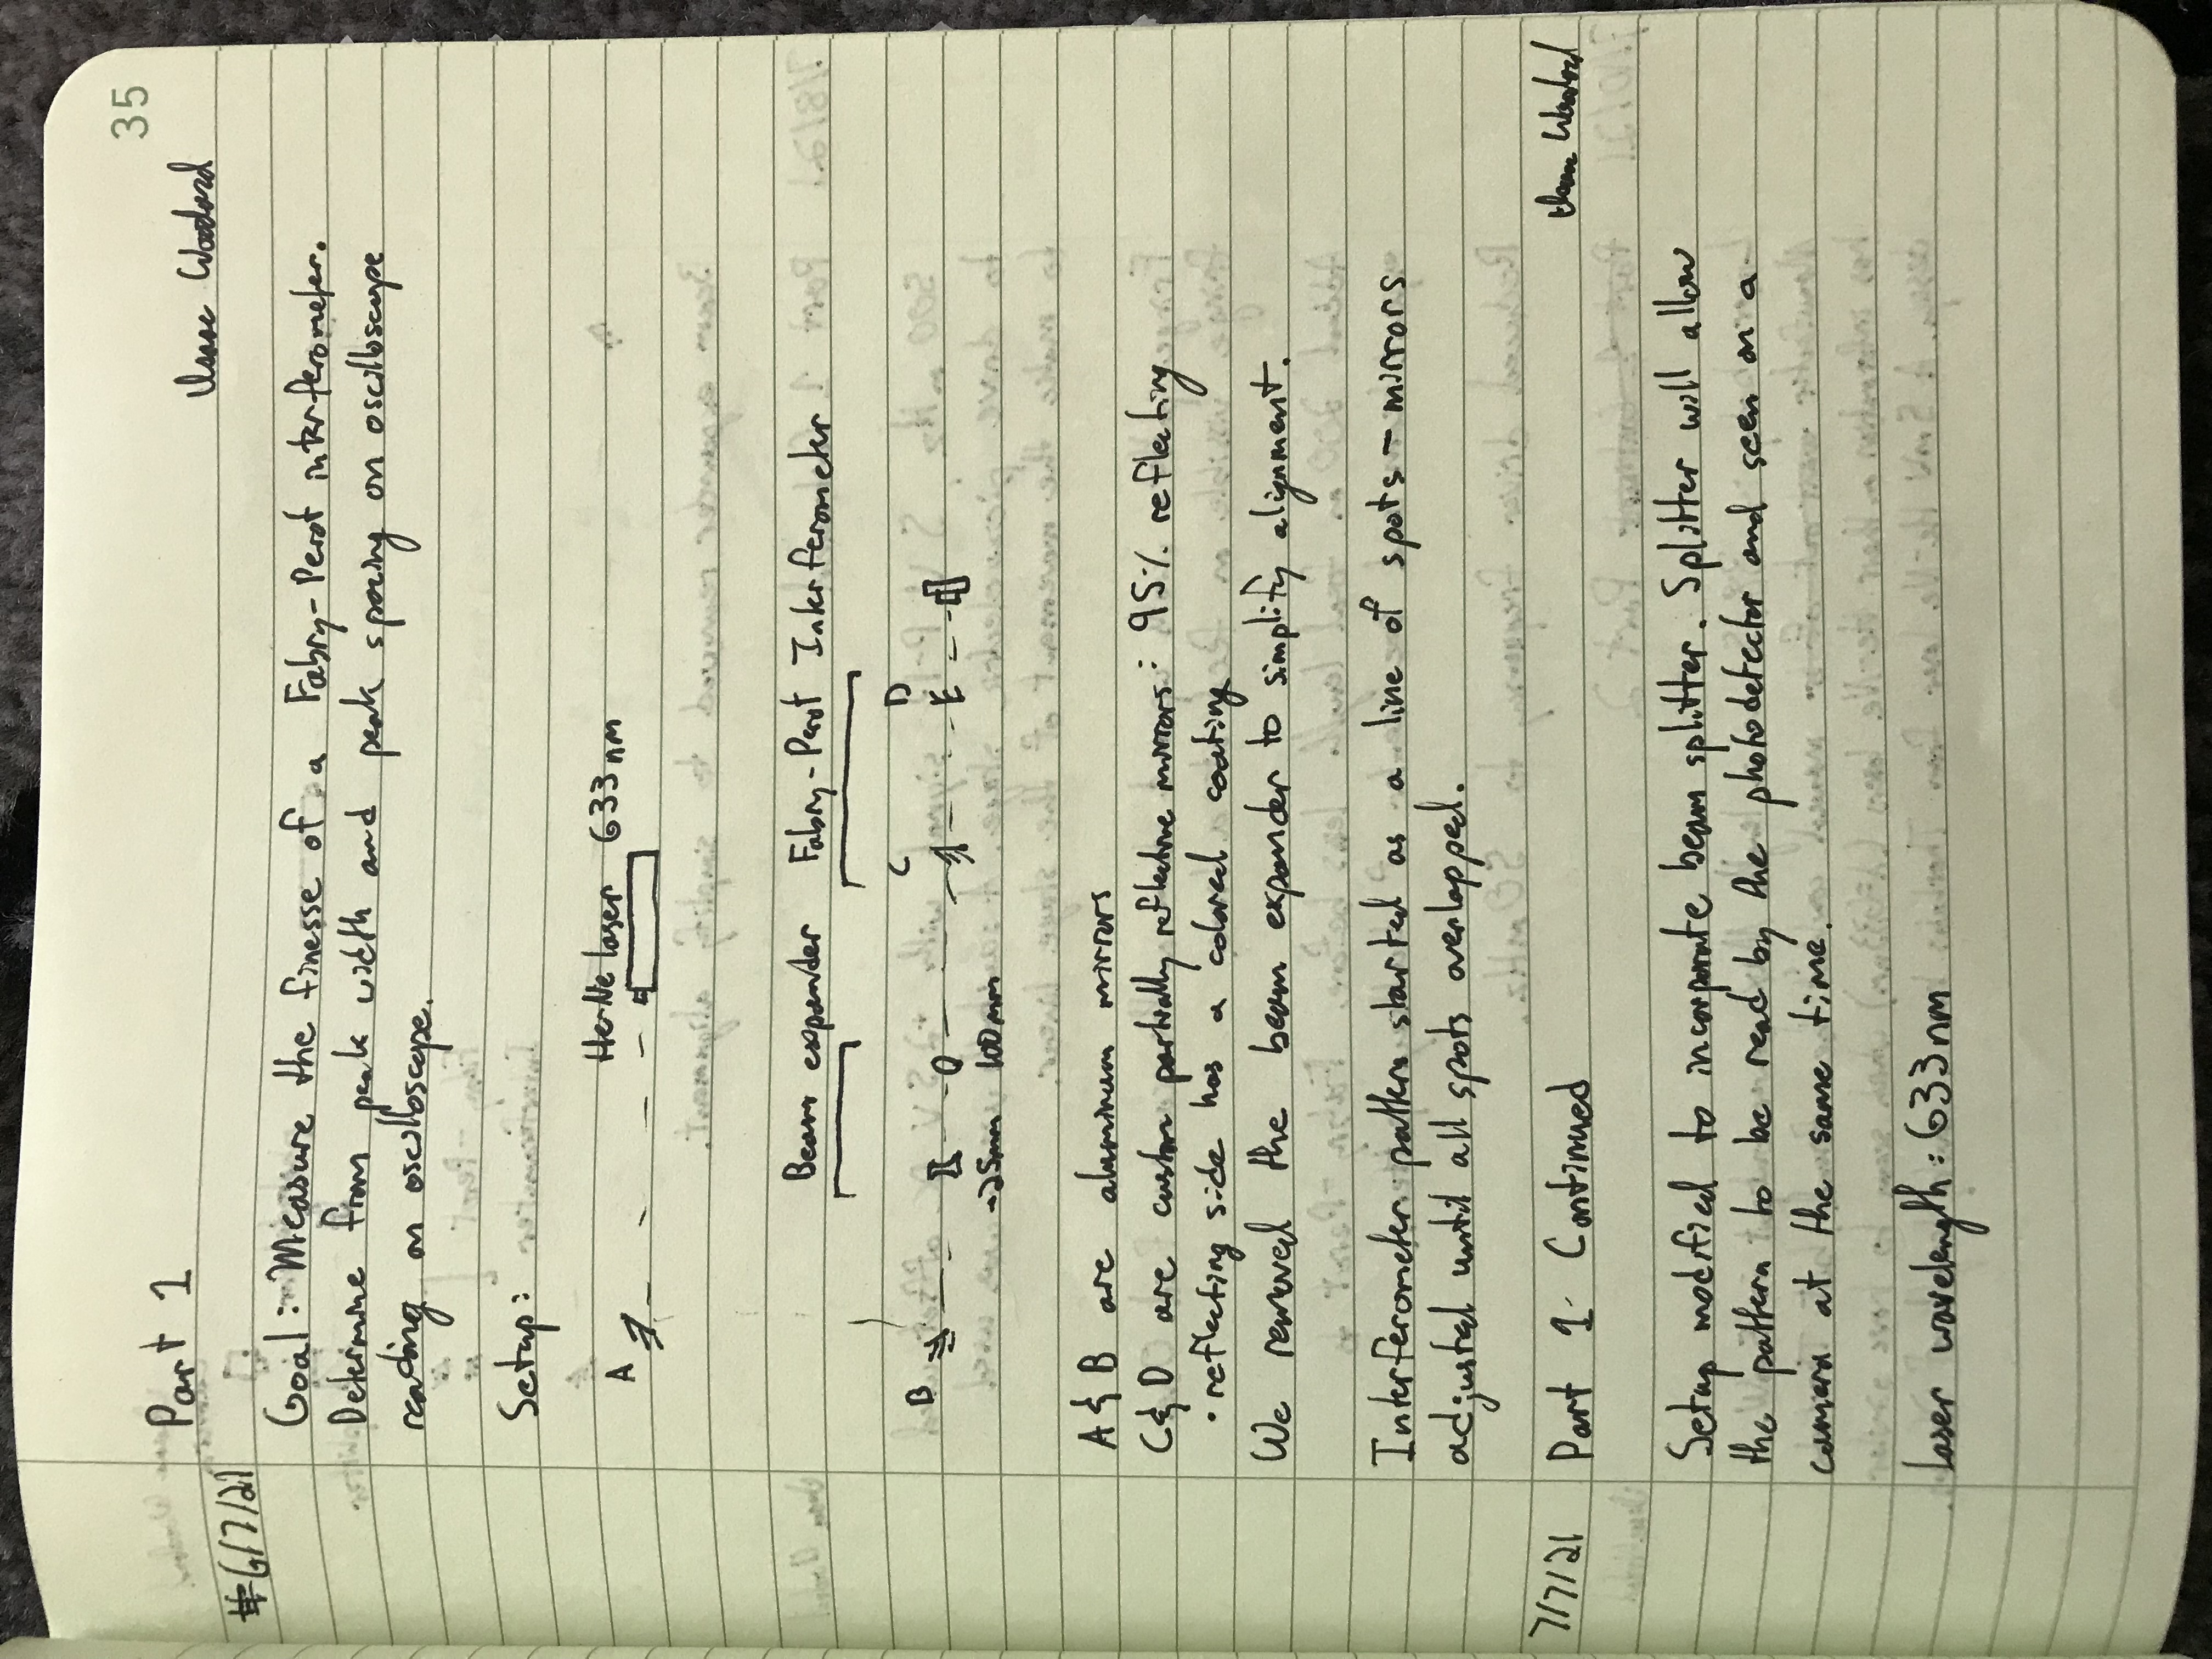 35
Part 1
Isaac Woodard
6/7/21
Goal: Measure the finesse of a Fabry-Perot interferometer.
Determine from peak width and peak spacing on oscilloscope
reading on oscilloscope.
Setup:
He-Ne laser 633 nm
A
Beam expander Fabry-Perot Interferometer
C D
B
-25mm 100mm
A & B are aluminum mirrors
C & D are custom partially reflective mirrors: 95% reflecting
• reflecting side has a colored coating
We removed the beam expander to simplify alignment.
Interferometer pattern started as a line of spots - mirrors
adjusted until all spots overlapped.
7/7/21 Part 1 Continued Isaac Woodard
Setup modified to incorporate beam splitter. Splitter will allow
the pattern to be read by the photodetector and seen on a
camera at the same time.
laser wavelength: 633nm